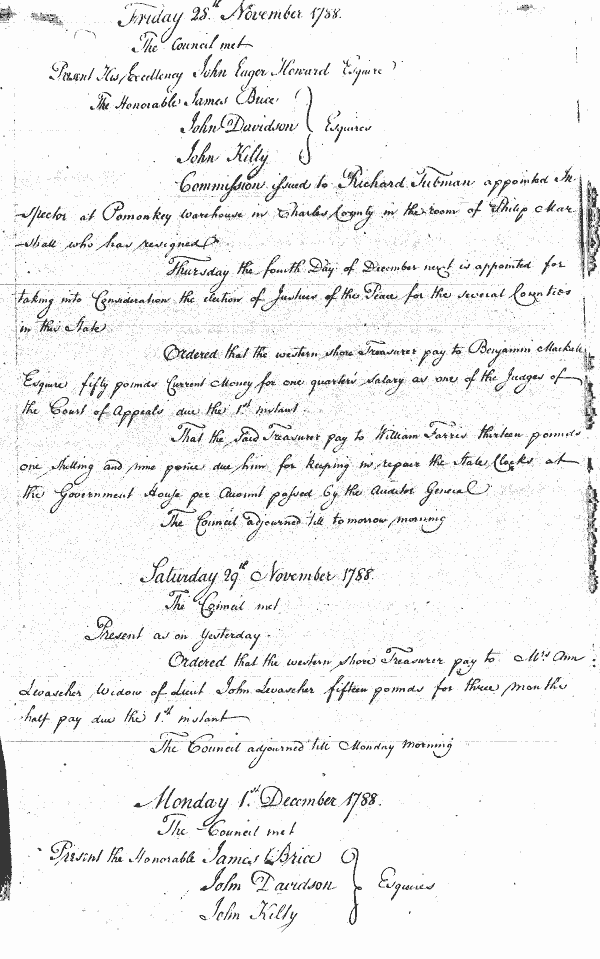 Friday 28.th November 1788.
The Council met
Present His Excellency John Eager Howard Esquire
The Honorable James Brice
John Davidson } Esquires
John Kilty
Commission issued to Richard Tubman appointed In-
spector at Pomonkey warehouse in Charles County in the room of Philip Mar-
shall who has resigned
Thursday the fourth Day of December next is appointed for
taking into Consideration the election of Justices of the Peace for the several Counties
in this State
Ordered that the western shore Treasurer pay to Benjamin Mackall
Esquire fifty pounds Current Money for one quarter's salary as one of the Judges of
the Court of Appeals due the 1st instant.
That the said Treasurer pay to William Farris thirteen pounds
one shilling and nine pence due him for keeping in repair the State Clocks at
the Government House per Account passed by the Auditor General
The Council adjourned till tomorrow morning
Saturday 29th November 1788.
The Council met
Present as on Yesterday.
Ordered that the western shore Treasurer pay to Mrs Ann
Levascher Widow of Lieut John Levascher fifteen pounds for three months
half pay due the 1st instant
The Council adjourned till Monday Morning
Monday 1.st December 1788.
The Council met
Present the Honorable James Brice
John Davidson } Esquires
John Kilty